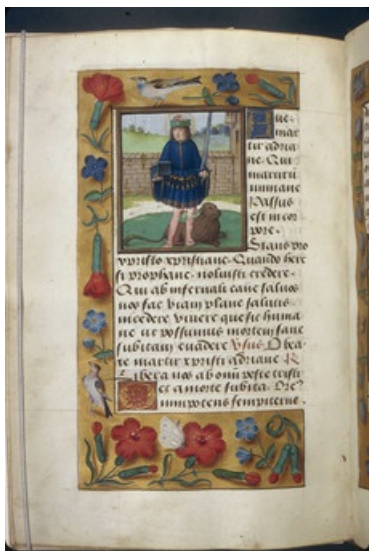 Aue
mar
tir adria
ne. Qui
martirii
immane
Passus
est in cor
pore.
Stans pro
xpristo xpristiane. Quando here
si prophane noluisti credere.
Qui ab infernali caue saluos
nos fac viam plane salutis
incedere viuere queste huma
ne ut possumus mortem sane
subitam euadere Vsus. O bea
te martir xpristi adriane R
Libera nos ab omni peste tristi
et a morte subita. Ore
mnipotens sempiterne.